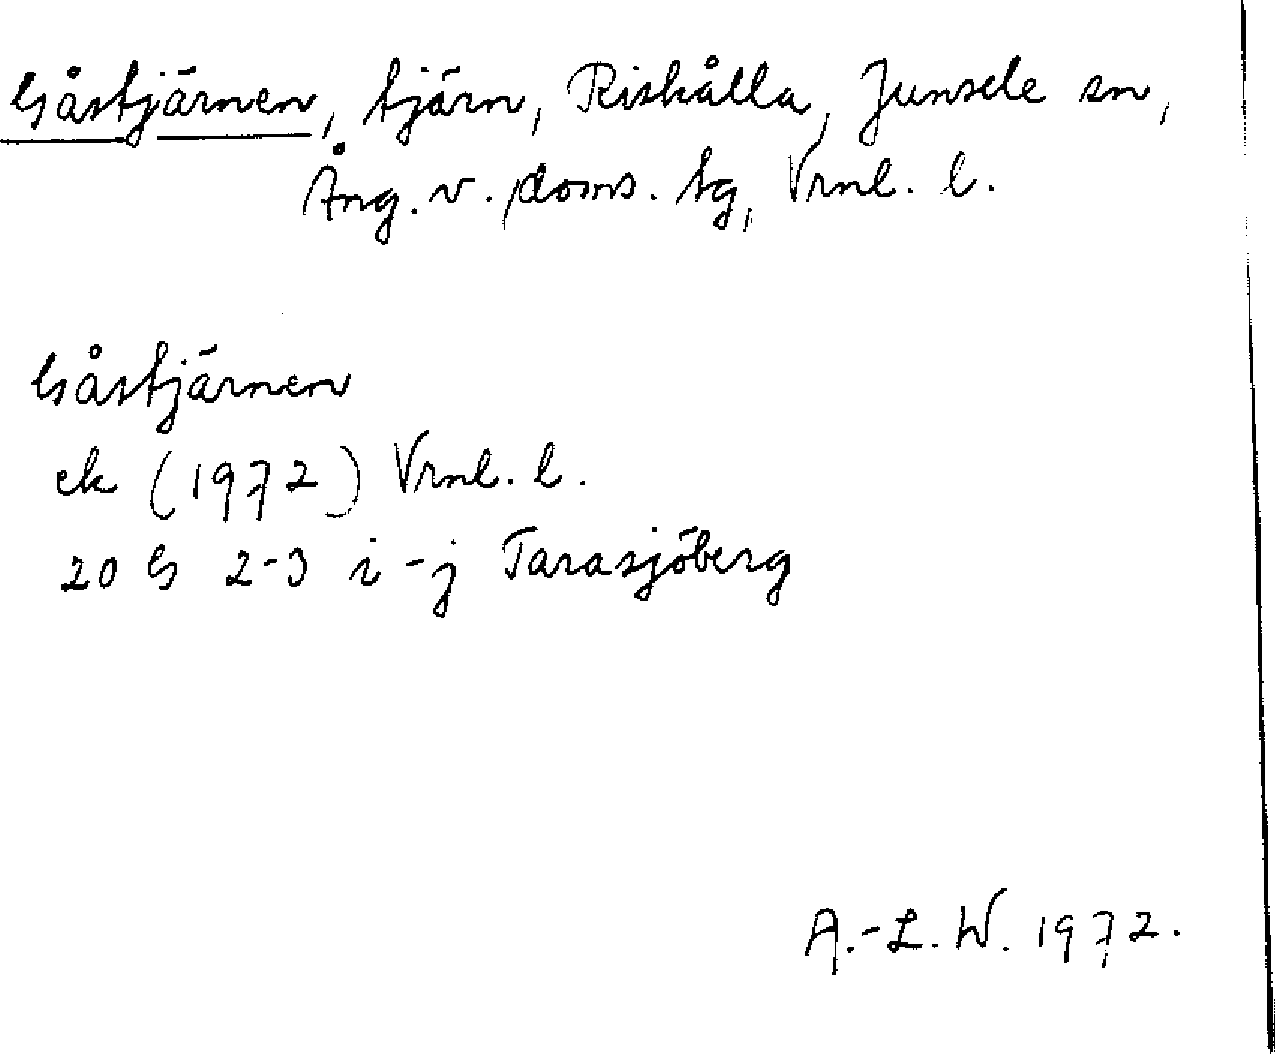 Gåstjärnen, tjärn, Riskålla, Junsele sn,
Ång. v. doms. tg, Vrnl. l.
Gåstjärnen
ek (1972) Vrnl. l.
20 G 2-3 i-j Tarasjöberg
A.-L. W. 1972.